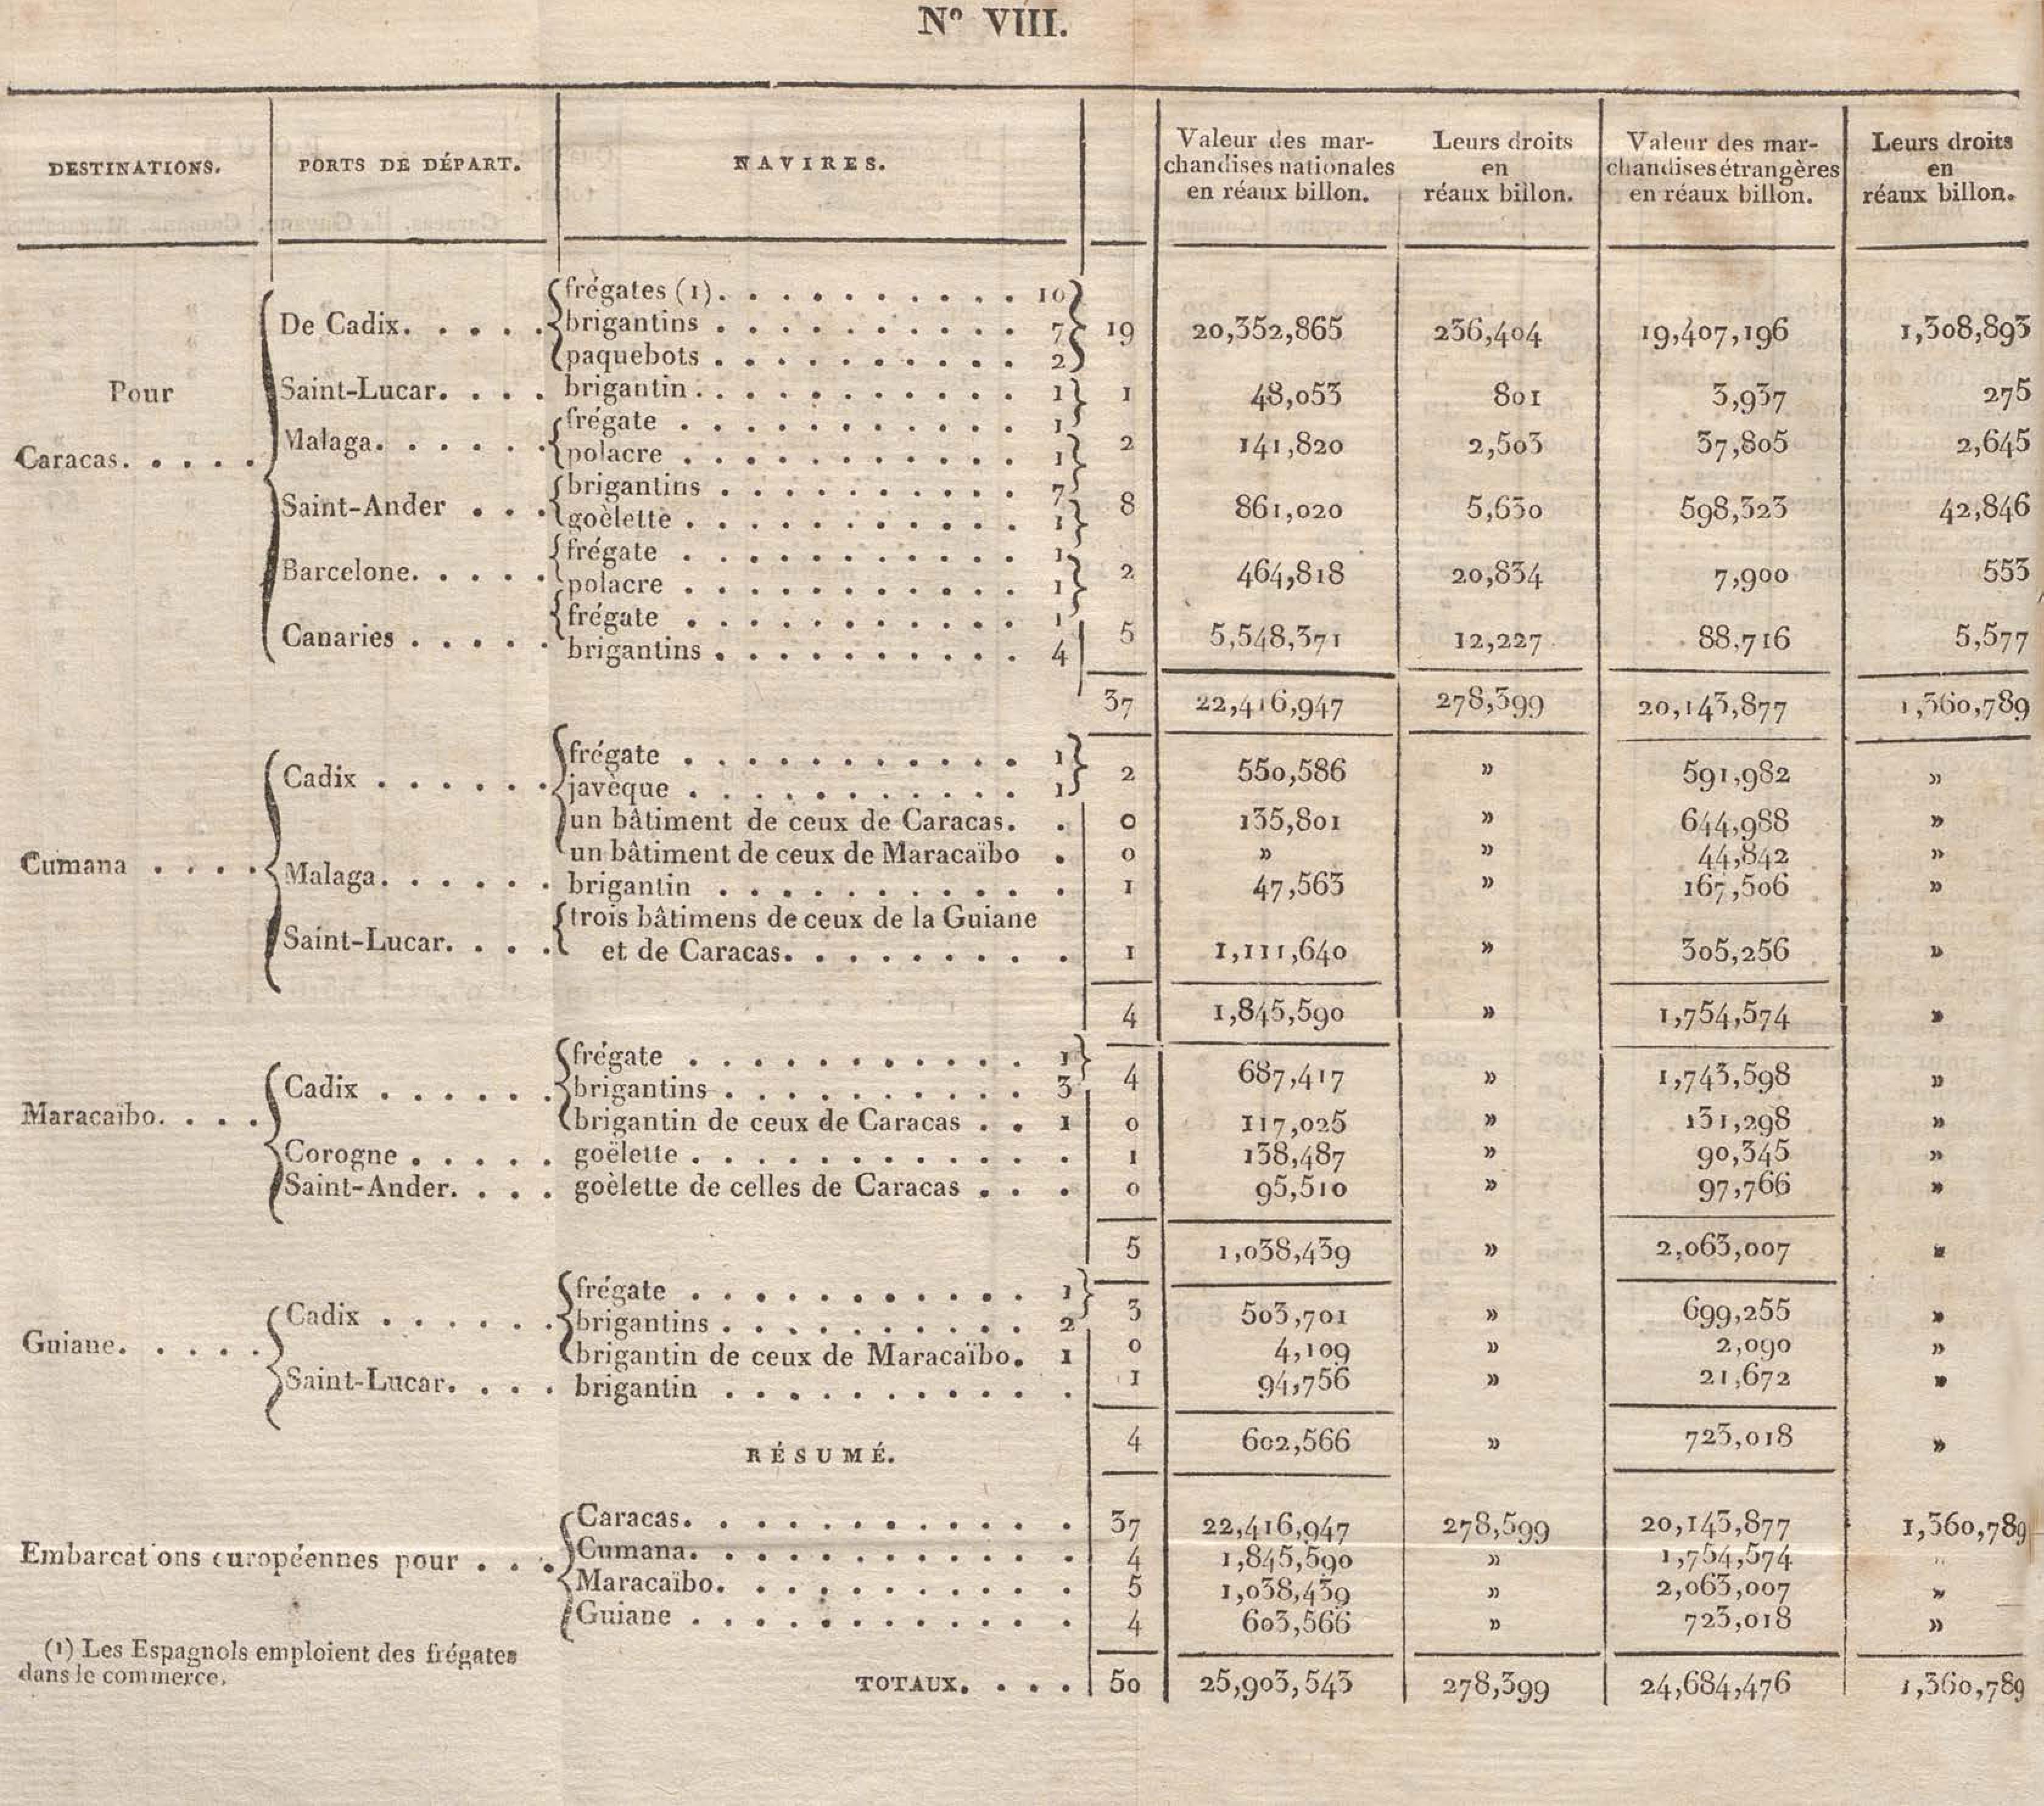 Nº VIII.
DESTINATIONS. PORTS DE DÉPART. NAVIRES. Valeur des mar- Leurs droits Valeur des mar- Leurs droits
chandises nationales en chandises étrangères en
en réaux billon. réaux billon. en réaux billon. réaux billon.
frégates (1). . . . . . . . . . 10
De Cadix. . . . . brigantins . . . . . . . . . . 7 19 20,352,865 236,404 19,407,196 1,308,893
paquebots . . . . . . . . . . 2
Pour Saint-Lucar. . . . brigantin . . . . . . . . . . . 1 1 48,053 801 3,937 275
frégate . . . . . . . . . . . 1
Caracas. . . . . Malaga. . . . . . polacre . . . . . . . . . . . 1 2 141,820 2,503 37,805 2,645
brigantins . . . . . . . . . . 7
Saint-Ander . . . goèlette . . . . . . . . . . . 1 8 861,020 5,630 598,323 42,846
frégate . . . . . . . . . . . 1
Barcelone. . . . . polacre . . . . . . . . . . . 1 2 464,818 20,834 7,900 553
frégate . . . . . . . . . . . 1
Canaries . . . . . brigantins . . . . . . . . . . 4 5 5,548,371 12,227 88,716 5,577
37 22,416,947 278,399 20,143,877 1,360,789
frégate . . . . . . . . . . . 1
Cadix . . . . . . javèque . . . . . . . . . . . 1 2 550,586 » 591,982 »
un bâtiment de ceux de Caracas. . 0 135,801 » 644,988 »
un bâtiment de ceux de Maracaïbo . 0 » » 44,842 »
Cumana . . . . Malaga. . . . . . brigantin . . . . . . . . . . . 1 47,563 » 167,506 »
trois bâtimens de ceux de la Guiane
Saint-Lucar. . . . et de Caracas. . . . . . . . . 1 1,111,640 » 305,256 »
4 1,845,590 » 1,754,574 »
frégate . . . . . . . . . . . 1
Cadix . . . . . . brigantins . . . . . . . . . . 3 4 687,417 » 1,743,598 »
Maracaïbo. . . . brigantin de ceux de Caracas . . 1 0 117,025 » 131,298 »
Corogne . . . . . goëlette . . . . . . . . . . . . 1 138,487 » 90,345 »
Saint-Ander. . . . goèlette de celles de Caracas . . . 0 95,510 » 97,766 »
5 1,038,439 » 2,063,007 »
frégate . . . . . . . . . . . 1
Cadix . . . . . . brigantins . . . . . . . . . . 2 3 503,701 » 699,255 »
Guiane. . . . . brigantin de ceux de Maracaïbo. 1 0 4,109 » 2,090 »
Saint-Lucar. . . . brigantin . . . . . . . . . . . 1 94,756 » 21,672 »
4 602,566 » 723,018 »
RÉSUMÉ.
Caracas. . . . . . . . . . . . . 37 22,416,947 278,599 20,143,877 1,360,789
Embarcations européennes pour . . . Cumana. . . . . . . . . . . . . 4 1,845,590 » 1,754,574 »
Maracaïbo. . . . . . . . . . . . 5 1,038,439 » 2,063,007 »
Guiane . . . . . . . . . . . . . 4 603,566 » 723,018 »
(1) Les Espagnols emploient des frégates
dans le commerce.
TOTAUX. . . . . 50 25,903,543 278,399 24,684,476 1,360,789